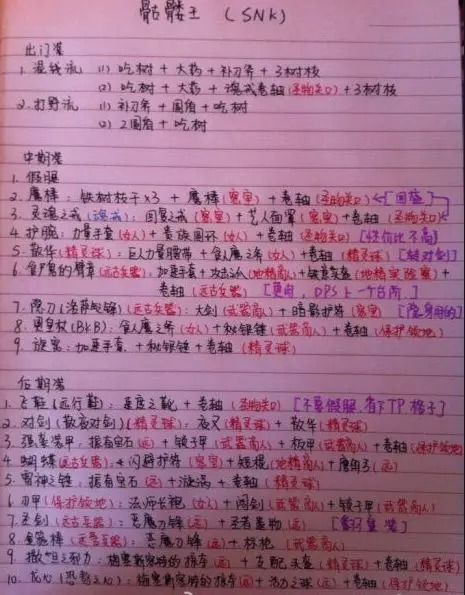 骷髅王 (SNK)
出门装
1. 混线流 (1) 吃树 + 大药 + 补刀斧 + 3树枝
(2) 吃树 + 大药 + 魂戒卷轴(圣物关口) + 3树枝
2. 打野流 (1) 补刀斧 + 圆盾 + 吃树
(2) 2圆盾 + 吃树
中期装
1. 假腿
2. 魔棒: 铁树枝干x3 + 魔棒(密室) + 卷轴(圣物关口)
3. 灵魂之戒(魂戒): 回复之戒(密室) + 艺人面罩(密室) + 卷轴(圣物关口)
4. 护腕: 力量手套(女人) + 贵族圆环(女人) + 卷轴(圣物关口) [性价比不高]
5. 散华(精灵球): 巨人力量腰带 + 食人魔之斧(女人) + 卷轴(精灵球) [转对剑]
6. 食尸鬼的臂章(远古兵器): 加速手套 + 攻击头(地精商人) + (地精实验室) +
卷轴(远古兵器) [更肉, DPS上一个台阶.]
7. 隐刀(洛萨之锋)(远古兵器): 大剑(武器商人) + 暗影护符(密室) [隐身用的]
8. 黑皇杖(BKB): 食人魔之斧(女人) + 秘银锤(武器商人) + 卷轴(保护领地)
9. 旋雾: 加速手套 + 秘银锤 + 卷轴(精灵球)
后期装
1. 飞鞋(远行鞋): 速度之靴 + 卷轴(圣物关口) [不要假腿.有了TP格子]
2. 对剑(散夜对剑)(精灵球): 夜叉(精灵球) + 散华(精灵球)
3. 强袭装甲: 振奋宝石(远) + 锁子甲(武器商人) + 板甲(武器商人) + 卷轴(保护领地)
4. 蝴蝶(远古兵器): 闪避护符(密室) + 短棍(地精商人) + 鹰角弓(远)
5. 雷神之锤: 振奋宝石(远) + 漩涡 + 卷轴(精灵球)
6. 刃甲(保护领地): 法师长袍(女人) + 阔剑(武器商人) + 锁子甲(武器商人)
7. 圣剑(远古兵器): 恶魔刀锋(远) + 圣者遗物(远) [翻盘装]
8. 金箍棒(远古兵器): 恶魔刀锋(远) + 标枪(武器商人)
9. 撒旦之邪力: 梅塞斯密特的掠夺(远) + 支配头盔(精灵球) + 卷轴(精灵球)
10. 龙心(恐鳌之心): 梅塞斯密特的掠夺(远) + 活力之球(远) + 卷轴(保护领地)